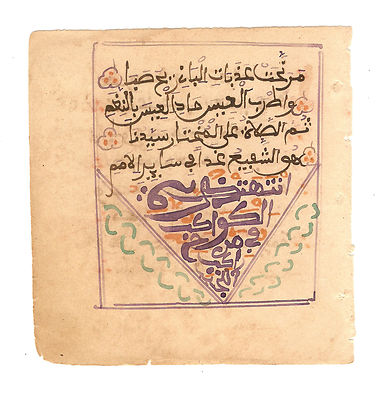 مرنحت عذبات البان ريح صبا
واطرب العيس حاد العيس بالنغم
ثم الصلاة على المختار سيدنا
هو الشفيع غدا في ساير الامم
انتهت
الكواكب
في مدح